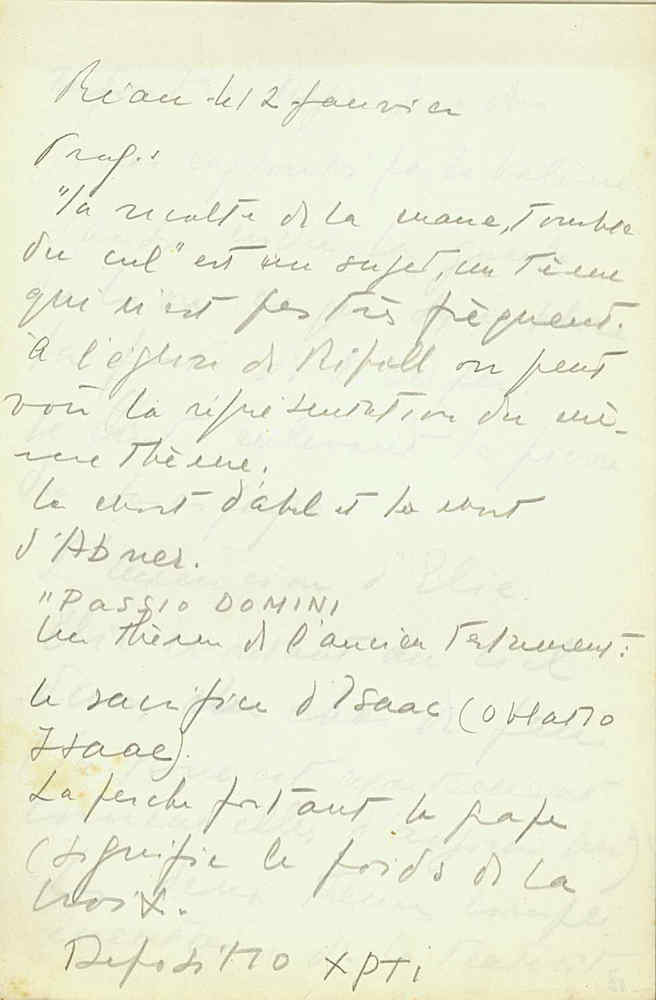 le 12 Janvier
Frag.:
"la récolte de la mane, tombée
du ciel" est un sujet, un tème
qui n'est pas très fréquent.
à l'église de Ripoll on peut
voir la représentation du mê-
me thème.
la mort d'abel et la mort
d'Abner.
"PASSIO DOMINI
Un thème de l'ancien Testament:
le sacrifice d'Isaac (oblatio
Isaac).
La perche portant le grape
(signifie le poids de la
croix.
Depositio XPTI